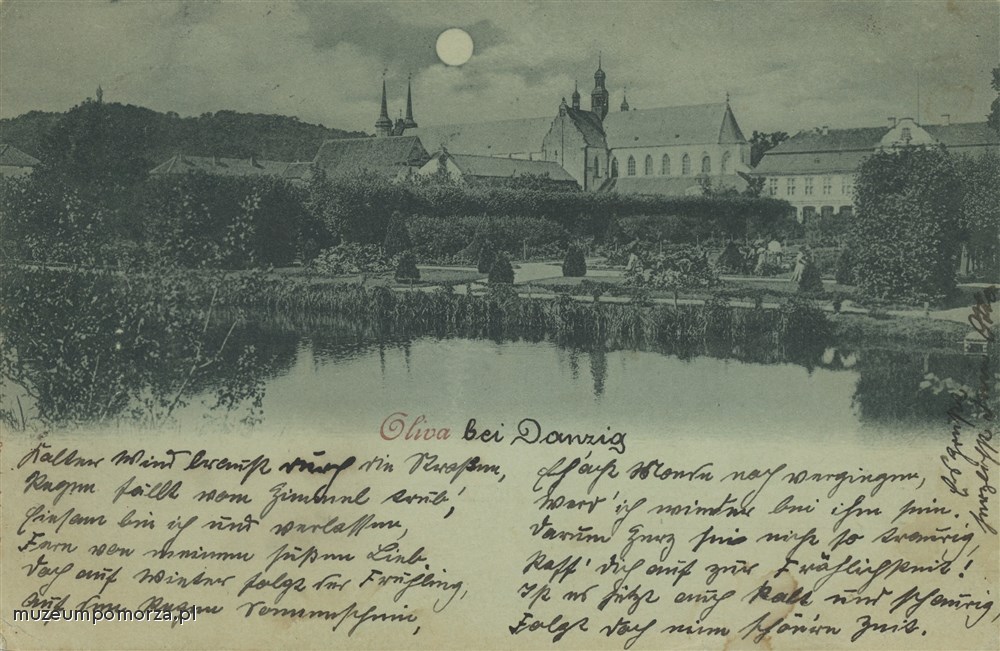 Oliva bei Danzig
Kalter Wind braust durch die Straßen,
Regen fällt vom Himmel trüb',
Einsam bin ich und verlassen,
Fern von meinem süßen Lieb.
Doch auf Winter folgt der Frühling,
Auf den Regen Sonnenschein,
Monde noch vergingen,
Werd' ich wieder bei ihm sein.
Darum Herz sei nicht so traurig,
Raff' dich auf zur Fröhlichkeit!
Ist es jetzt auch kalt und schaurig,
Folgt doch eine schönere Zeit.
Es grüßt
herzlichst Otto
muzeumpomorza.pl